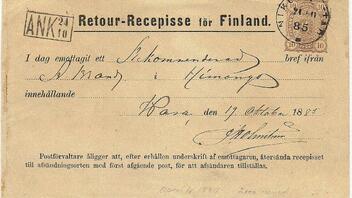 ANK 24/10
Retour-Recepisse för Finland.
85
10 10
I dag emottagit ett Rekommenderad bref ifrån
A. Brandt i Himango
innehållande
Wasa, den 19 Oktober 1885
J Holmström
Postförvaltare åligger att, efter erhållen underskrift af emottagaren, återsända recepisset
till afsändningsorten med först afgående post, för att afsändaren tillställas.